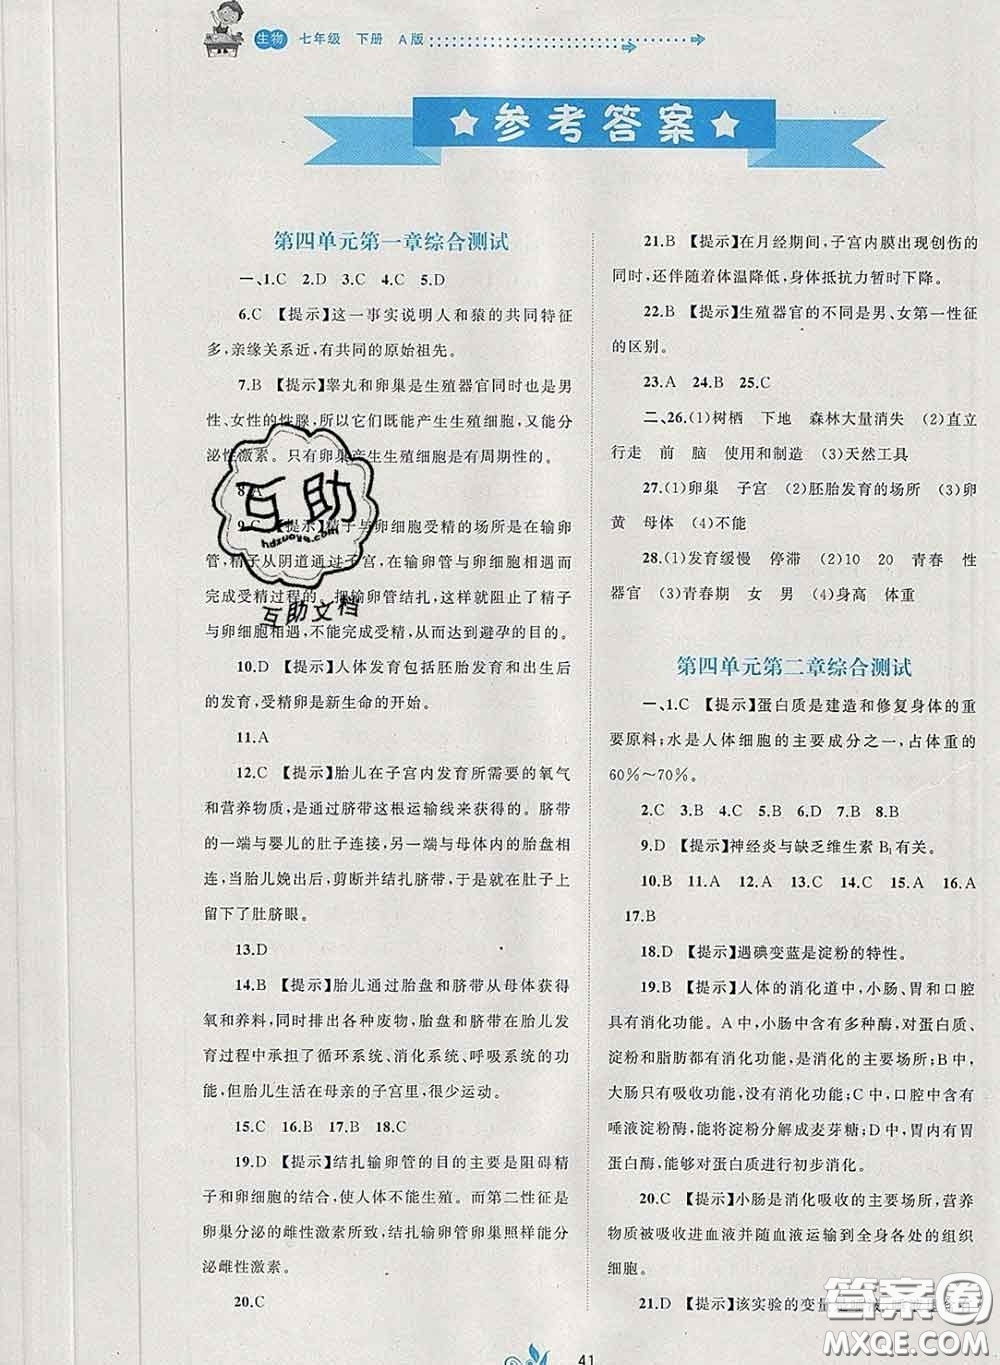 生物 七年级 下册 A版
参考答案
第四单元第一章综合测试
一、1.C 2.D 3.C 4.C 5.D
6.C 【提示】这一事实说明人和猿的共同特征
多，亲缘关系近，有共同的原始祖先。
7.B 【提示】睾丸和卵巢是生殖器官同时也是男
性、女性的性腺，所以它们既能产生生殖细胞，又能分
泌性激素。只有卵巢产生生殖细胞是有周期性的。
8.A
9.C 【提示】精子与卵细胞受精的场所是在输卵
管，精子从阴道通过子宫，在输卵管与卵细胞相遇
完成受精过程的。把输卵管结扎，这样就阻止了精子
与卵细胞相遇，不能完成受精，从而达到避孕的目的。
10.D 【提示】人体发育包括胚胎发育和出生后
的发育，受精卵是新生命的开始。
11.A
12.C 【提示】胎儿在子宫内发育所需要的氧气
和营养物质，是通过脐带这根运输线来获得的。脐带
的一端与婴儿的肚子连接，另一端与母体内的胎盘相
连，当胎儿娩出后，剪断并结扎脐带，这样在肚子上就
留下了肚脐眼。
13.D
14.B 【提示】胎儿通过胎盘和脐带从母体获得
氧和养料，同时排出各种废物，胎盘和脐带在胎儿发
育过程中承担了循环系统、消化系统、呼吸系统的功
能。胎儿生活在母亲的子宫里，很少运动。
15.C 16.B 17.B 18.C
19.D 【提示】结扎输卵管的目的主要是阻碍精
子和卵细胞的结合，使人体不能生殖。而第二性征是
卵巢分泌的雌性激素所致，结扎输卵管卵巢照样能分
泌雌性激素。
20.C
21.B 【提示】在月经期间，子宫内膜出现创伤的
同时，还伴随着体温降低，身体抵抗力暂时下降。
22.B 【提示】生殖器官的不同是男、女第一性征
的区别。
23.A 24.B 25.C
二、26.(1)树栖 下地 森林大量消失 (2)直立
行走 前 脑 使用和制造 (3)天然工具
27.(1)卵巢 子宫 (2)胚胎发育的场所 (3)卵
黄 母体 (4)不能
28.(1)发育缓慢 停滞 (2)10 20 青春 性
器官 (3)青春期 女 男 (4)身高 体重
第四单元第二章综合测试
一、1.C 【提示】蛋白质是建造和修复身体的重
要原料；水是人体细胞的主要成分之一，占体重的
60%～70%。
2.C 3.B 4.C 5.B 6.D 7.B 8.B
9.D 【提示】神经炎与缺乏维生素B₁有关。
10.B 11.A 12.A 13.C 14.C 15.A 16.A
17.B
18.D 【提示】遇碘变蓝是淀粉的特性。
19.B 【提示】人体的消化道中，小肠、胃和口腔
具有消化功能。A中，小肠中有多种酶，对蛋白质、
淀粉和脂肪都有消化功能，是消化的主要场所；B中，
大肠只有吸收功能，没有消化功能；C中，口腔中含有
唾液淀粉酶，能将淀粉分解成麦芽糖；D中，胃内有胃
蛋白酶，能够对蛋白质进行初步消化。
20.C 【提示】小肠是消化吸收的主要场所，营养
物质被吸收进血液并随血液运输到全身各处的组织
细胞。
21.D 【提示】该实验的变量
41
互助
hdzuoye.com
互助文档
答案圈
MXQE.COM